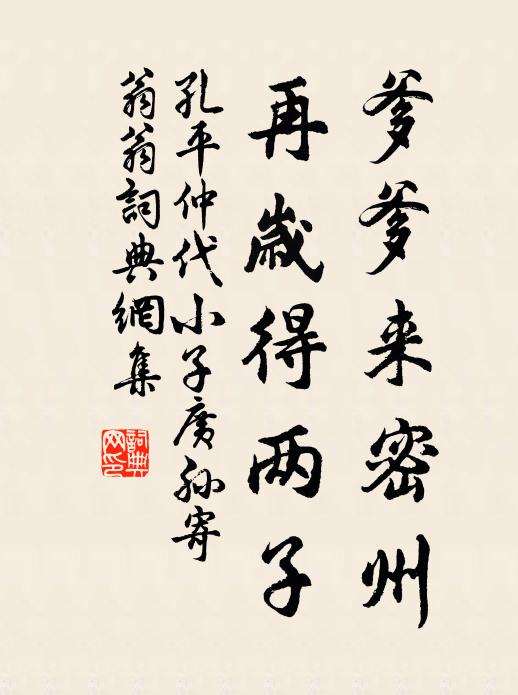 爹爹来密州
再歲得两子
孔平仲代小子廣孫寄
翁翁詞典網集
詞典网印